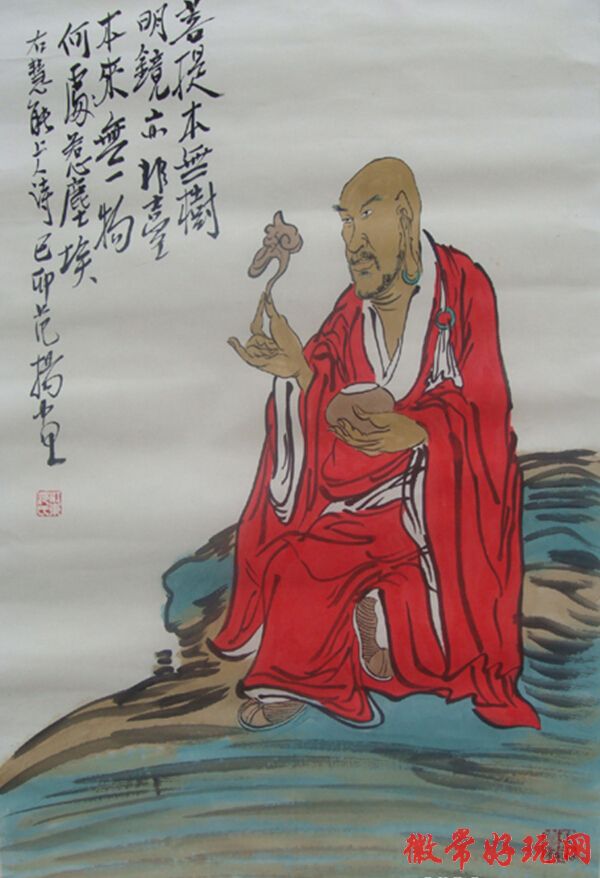 菩提本無樹
明鏡亦非臺
本來無一物
何處惹塵埃
右慧能上人诗 己卯范揚畫
徽常好玩网